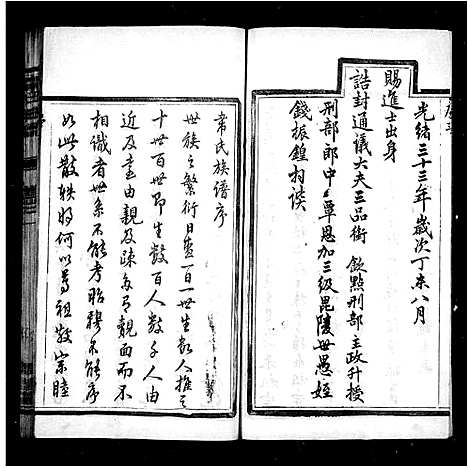 光緒三十三年歲次丁未八月
賜進士出身
誥封通議大夫三品銜 欽點刑部主政升授
刑部郎中 覃恩加三級毘陵世愚姪
錢振鍠拜譔
常氏族譜序
世族之繁衍日盛一日一世生數人推之
十世百世即生數百人數千人由
近及遠由親及疎多有覿面而不
相識者世系不能考昭穆不能序
如此散軼將何以尊祖敬宗睦